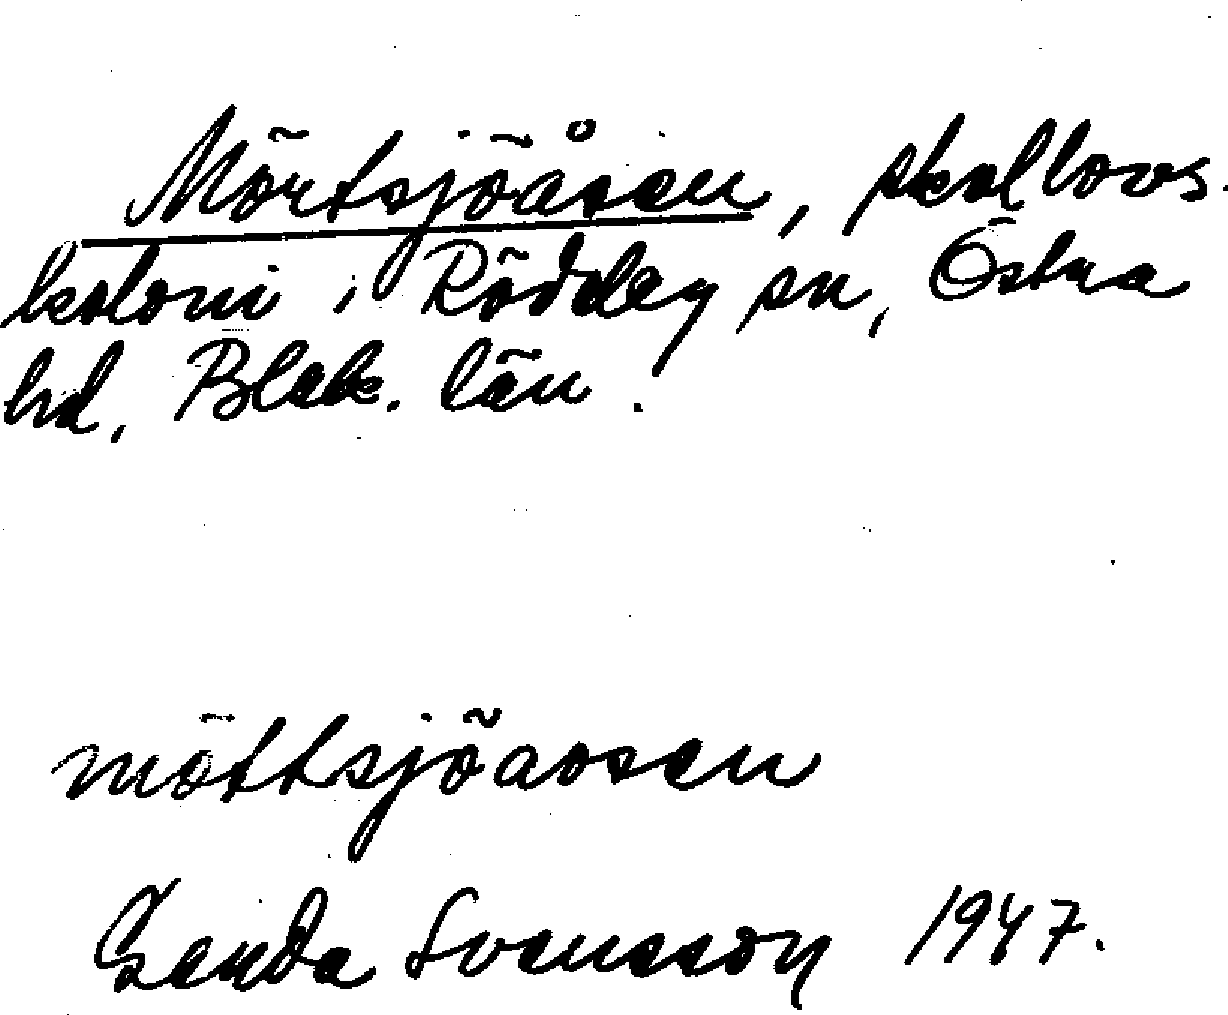 Mörtsjöåsen, skollovs-
koloni i Rödeby sn, Östra
hd, Blek. län.
möttsjöaosen
Genda Svensson 1947.